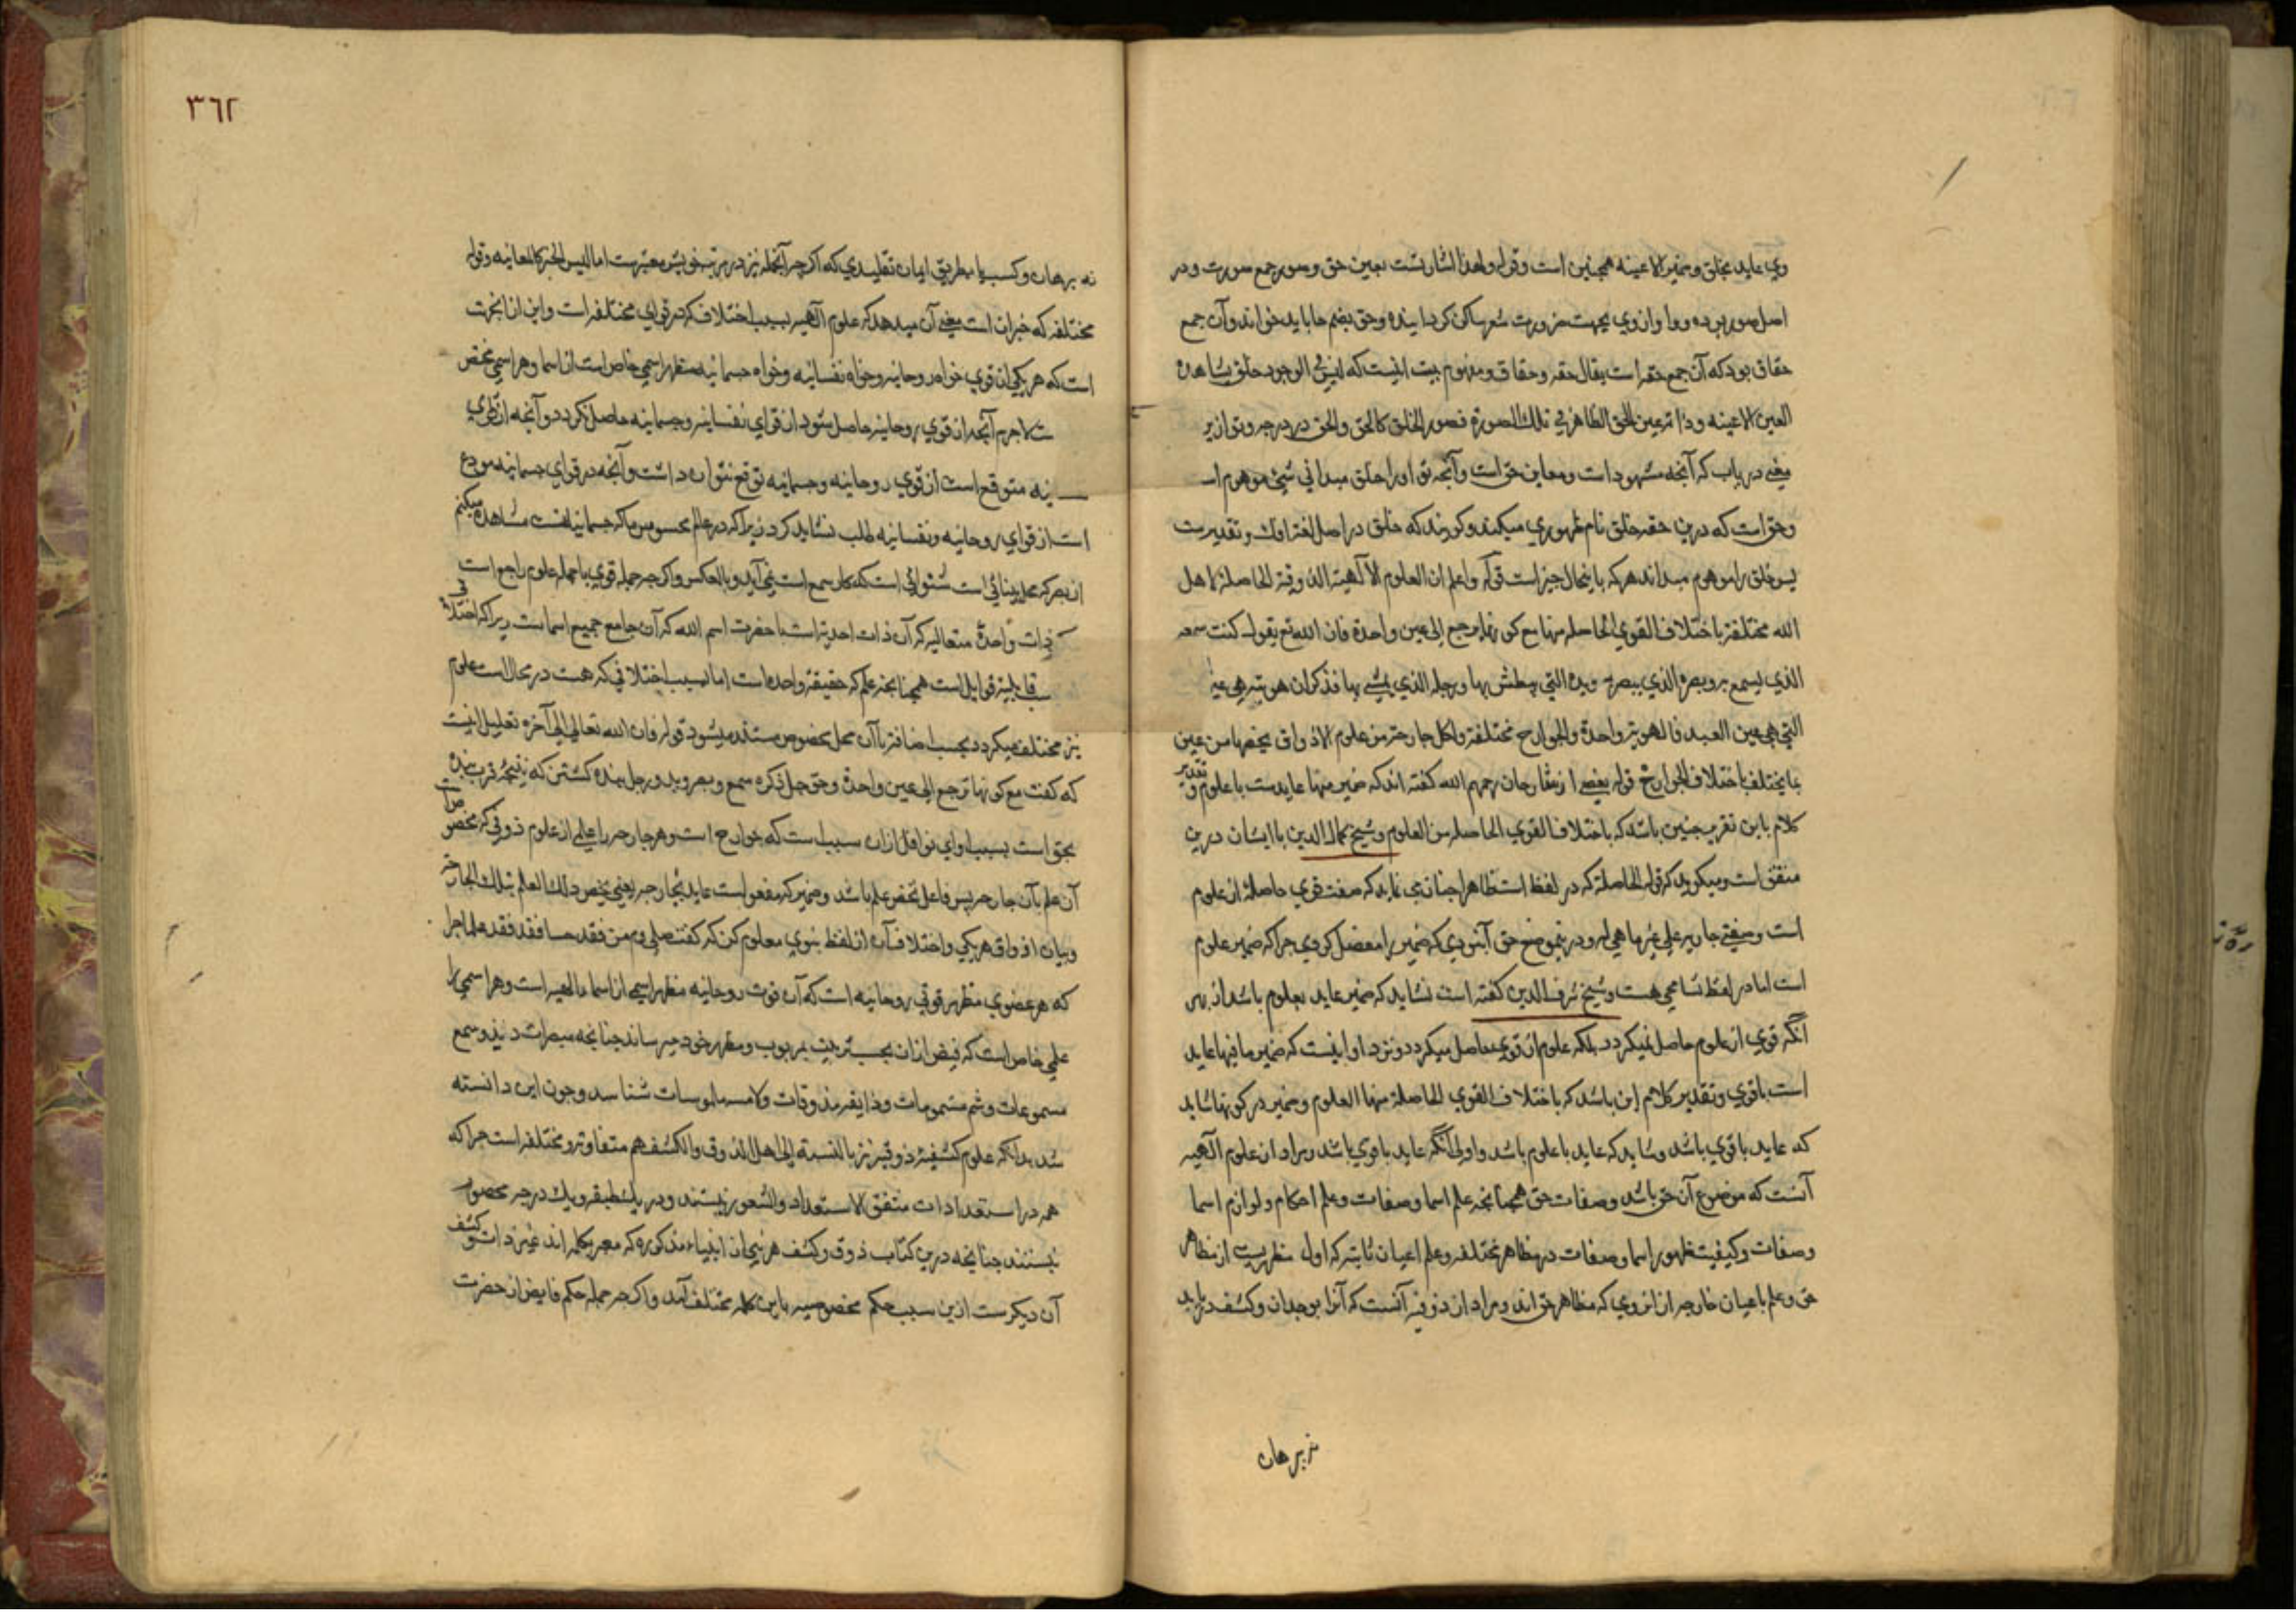 وی عاید بخلق و ضمیر الا عینه همچنین است و قوله ولهذا اشارتست بعین حق و صور جمع صورت و در
اصل صور بوده و واو از وی بجهت ضرورت شعر ساکن کردانیده و حق بضم حا باید خواند و آن جمع
حقاق بود که آن جمع حقه است یقال حقه و حقاق و مفهوم بیت اینست که لیس فی الوجود خلق یشاهده
العین الا عینه و ذاته عین الحق الظاهر فی تلک الصورة فصور الخلق کالحق والحق در در جه و توازیر
معنی دریاب که آنچه مشهود است و معاین حق است و آنچه تو او را خلق میدانی شیء موهوم است
و حق است که درین حقه خلق نام ظهوری میکند و کویند که خلق در اصل لغت افک و تقدیرست
پس خلق را موهوم میداند هر که باینحال خبیر است قوله واعلم ان العلوم الالهیة الذوقیة الحاصلة لاهل
الله مختلفة باختلاف القوی الحاصلة منها مع کونها ترجع الی عین واحدة فان الله تع یقول کنت سمعه
الذی یسمع به و بصره الذی یبصر به و یده التی یبطش بها و رجله الذی یمشی بها فذکر ان هویته هی عین
التی هی عین العبد فالهویة واحدة والجوارح مختلفة و لکل جارحة من علوم الاذواق یخصها من عین
تقدیر
بما یختلف باختلاف الجوارح قوله بعضی از شارحان رحمهم الله کفته اند که ضمیر منها عایدست با علوم و
کلام باین تقریب چنین باشد که باختلاف القوی الحاصلة من العلوم و شیخ کمال الدین با ایشان درین
متفق است و میکوید که قوله الحاصلة که در لفظ استظاهرا چنان می نماید که صفت قوی حاصله از علوم
است و صفتی جاریه علی غیر ما هی له و درین موضع حق آنبودی که ضمیر را مفصل کردی چرا که ضمیر علوم
است اما در لفظ تسامحی هست و شیخ شرف الدین کفته است نشاید که ضمیر عاید بعلوم باشد از بهر
آنکه قوی از علوم حاصل نمیکردد بلکه علوم از قوی حاصل میکردد و نزد او اینست که ضمیر ما فیها عاید
است باقوی و تقدیر کلام این باشد که باختلاف القوی الحاصلة منها العلوم و ضمیر در کونها شاید
که عاید باقوی باشد و شاید که عاید با علوم باشد و اولی آنکه عاید باقوی باشد و مراد از علوم الهیه
آنست که موضوع آن حق باشد و صفات حق همچنانچه علم اسما و صفات و علم احکام و لوازم اسما
و صفات و کیفیت ظهور اسما و صفات در مظاهر مختلفه و علم اعیان ثابته که اول مظهریست از مظاهر
حق و علم باعیان خارجه از انروی که مظاهر حق اند و مراد از ذوقیه آنست که آنرا بوجدان و کشف دریابد
نه برهان
٣٦٢
نه برهان و کسب یا بطریق ایمان تقلیدی که اکرچه آنجمله نیز در مرتبه خویش معتبرست اما لیس الخبر کالمعاینه و قوله
مختلفه که خبران است معنی آن میدهد که علوم الهیه بسبب اختلاف که در قوای مختلفه است و این از انجهت
است که هر یکی ازان قوی خواه روحانیه و خواه نفسانیه و خواه جسمانیه مظهر اسمی خاص است از اسما و هر اسمی مختص
ست لاجرم آنچه از قوی روحانیه حاصل شود از قوای نفسانیه و جسمانیه حاصل نکردد و آنچه از قوی
نیه متوقع است از قوی روحانیه و جسمانیه توقع نتوان داشت و آنچه در قوای جسمانیه مودع
است از قوای روحانیه و نفسانیه طلب نشاید کرد زیرا که در عالم محسوس ما که جسمانیات است مشاهده میکنیم
از بصر که محل بینائی است شنوائی است که کار سمع است نمی آید و بالعکس و اکرچه جمله قوی با جمله علوم راجع است
فی
ذات واحدة متعالیه که آن ذات احدیة است با حضرت اسم الله که آن جامع جمیع اسماست زیرا که اختلاف
قابلیة قوابل است همچنانچه علم که حقیقة واحده است اما بسبب اختلافی که هست در محال است معلوم
نیز مختلف میکردد بحسب اضافت با آن محل مخصوص مستلذ میشود قوله فان الله تعالی الی آخره تعلیل اینست
که کفت مع کونها ترجع الی عین واحدة و حق جل ذکره سمع و بصر و ید و رجل بنده کشتن که نتیجه قرب بنده
بحق است بسبب اوای نوافل ازان سبب است که جوارح است و هر جارحه را علمی از علوم ذوقی که مخصوص
آن علم بآن جارحه پس فاعل تخص علم باشد و ضمیر که مفعول است عاید بجارحه یعنی یخص ذلک العلم بتلک الجارحة
و بیان اذواق هر یکی و اختلاف آن از لفظ نبوی معلوم کن که کفت صلی وم من فقد حسا فقد فقد علما جرا
که هر عضوی مظهر قوتی روحانیه است که آن قوت روحانیه مظهر اسمی از اسماء الهیه است و هر اسمی را
علمی خاص است که فیض ازان بحسب تربیت بمربوب و مظهر خود میرساند چنانچه مبصرات دیند و سمع
مسموعات و شم مشمومات و ذایقه مذوقات و لامسه ملموسات شناسد و چون این دانسته
شد بدانکه علوم کشفیه ذوقیه نیز بالنسبة الی اهل الذوق والکشف هم متفاوت و مختلف است چرا که
همه در استعدادات متفق الاستعداد والشعور نیستند و در یک طبقه و یک درجه محصور
نیستند چنانچه درین کتاب ذوق و کشف هر نبی از انبیاء مذکوره که معبر بکلمه اند غیر ذوق و کشف
آن دیکرست ازین سبب حکم مخصوصه باین کلمه مختلف آمد و اکرچه جمله حکم فایض از حضرت